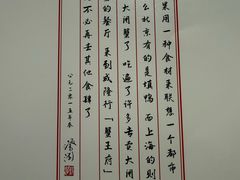 果用一种食材来联想一个都市
么北京有的是填鸭而上海的则
大闸蟹了吃遍了许多专卖大闸
的餐厅来到成隆行「蟹王府」
不必再去其他食肆了
公元二零一五年春
蔡澜